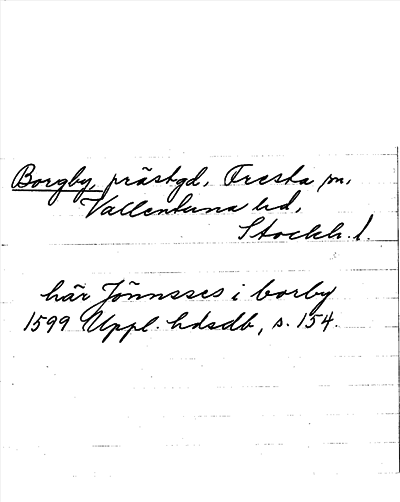 Borgby, prästgd, Fresta sn,
Vallentuna hd,
Stockh. l.
här Jönnsses i borby
1599 Uppl. hdsdb, s. 154.